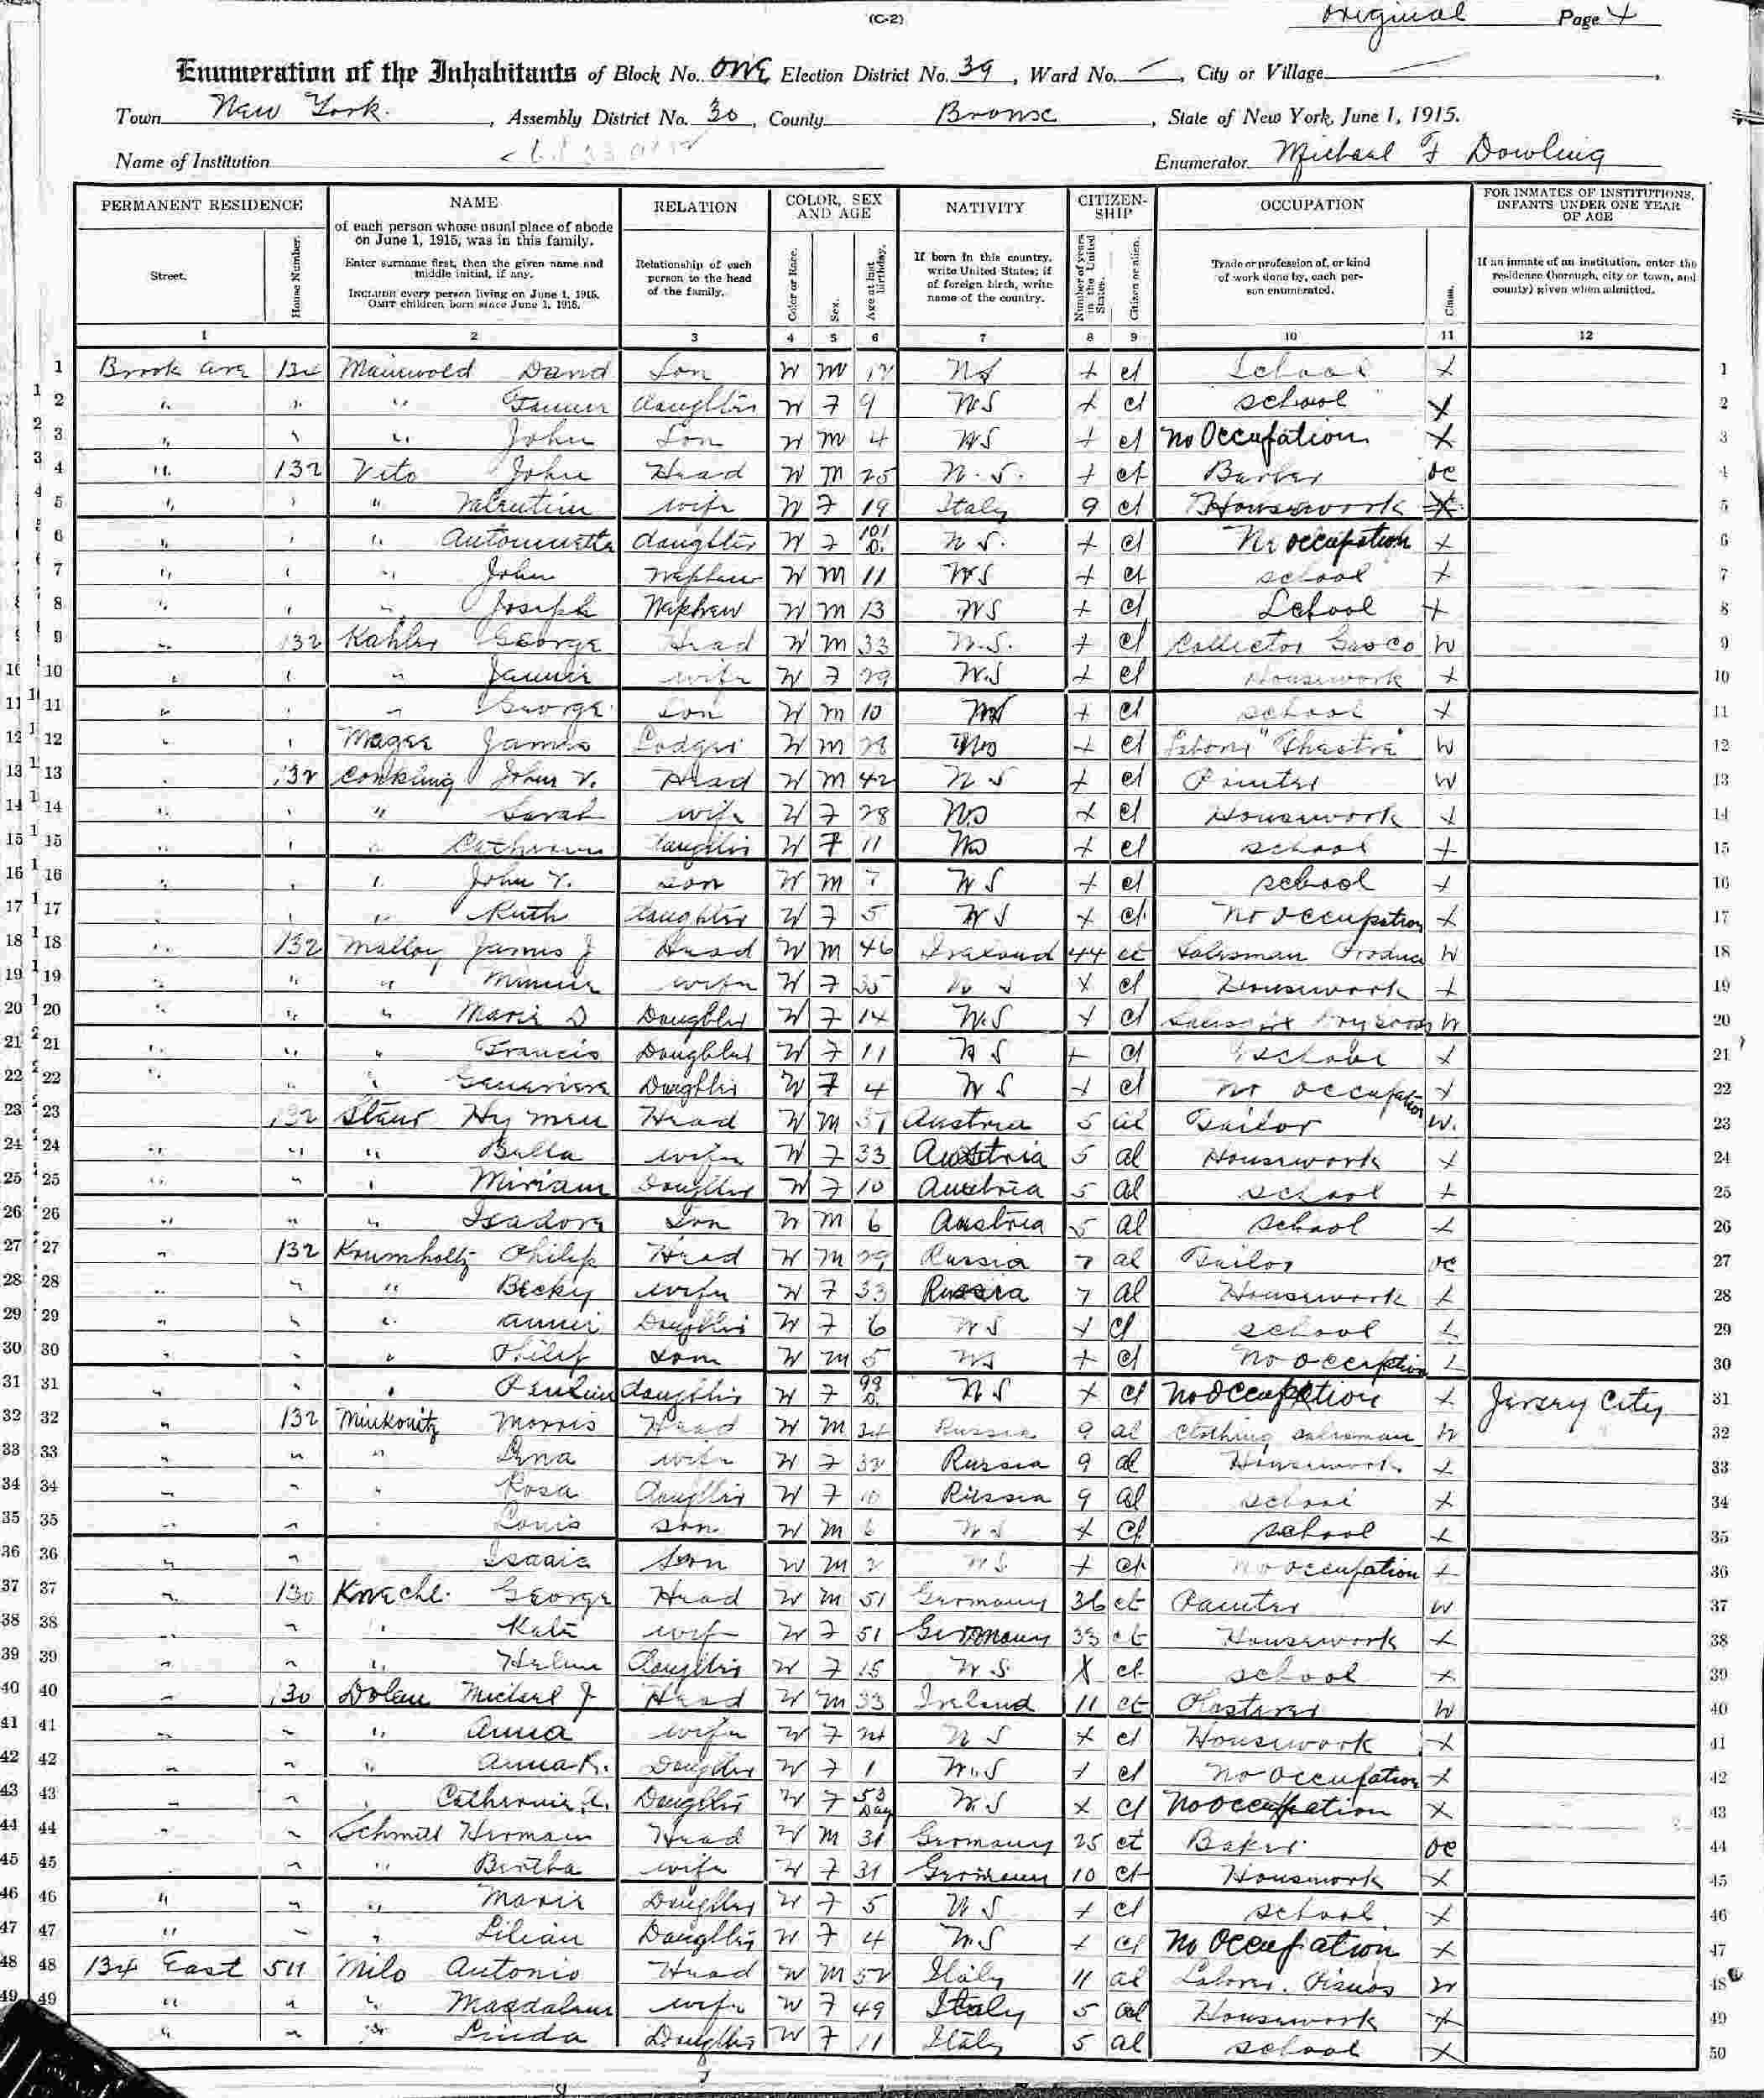 (C-2)
Original Page 4
Enumeration of the Inhabitants of Block No. ONE Election District No. 39, Ward No. —, City or Village —.
Town New York, Assembly District No. 30, County Bronx, State of New York, June 1, 1915.
Name of Institution Enumerator Michael F Dowling
PERMANENT RESIDENCE NAME RELATION COLOR, SEX AND AGE NATIVITY CITIZENSHIP OCCUPATION FOR INMATES OF INSTITUTIONS, INFANTS UNDER ONE YEAR OF AGE
Street. House Number. of each person whose usual place of abode on June 1, 1915, was in this family. Enter surname first, then the given name and middle initial, if any. INCLUDE every person living on June 1, 1915. OMIT children born since June 1, 1915. Relationship of each person to the head of the family. Color or Race. Sex. Age at last birthday. If born in this country, write United States; if of foreign birth, write name of the country. Number of years in the United States. Citizen or alien. Trade or profession of, or kind of work done by, each person enumerated. Class. If an inmate of an institution, enter the residence (borough, city or town, and county) given when admitted.
1 2 3 4 5 6 7 8 9 10 11 12
1 Brook Ave David Son W M US x ct School x 1
2 " " " daughter W F 9 US x ct school x 2
3 " " " John Son W M 4 US x ct no Occupation x 3
4 " 132 Vito John Head W M 25 U.S. x ct Barber oc 4
5 " " " wife W F 19 Italy 9 ct Housework x 5
6 " " " daughter W F 101 D. U.S. x ct No occupation x 6
7 " " " John Nephew W M 11 US x ct school x 7
8 " " " Joseph Nephew W M 13 US x ct School x 8
9 " 132 Kahler George Head W M 33 U.S. x ct Collector Gas Co W 9
10 " " " Jennie wife W F 29 U.S x ct Housework x 10
11 " " " George son W M 10 US x ct school x 11
12 " " Magee James Lodger W M 28 US x ct "Theatre" W 12
13 " 132 Conkling John V. Head W M 42 U S x ct W 13
14 " " " Sarah wife W F 28 US x ct Housework x 14
15 " " " daughter W F 11 US x ct school x 15
16 " " " John V. son W M 7 U S x ct school x 16
17 " " " Ruth daughter W F 5 U S x ct No occupation x 17
18 " 132 Malloy James J Head W M 46 Ireland 44 ct Salesman Produce W 18
19 " " " Minnie wife W F 35 U S x ct Housework x 19
20 " " " Marie D Daughter W F 14 U.S x ct W 20
21 " " " Francis Daughter W F 11 U S x ct school x 21
22 " " " Genevieve Daughter W F 4 U S x ct no occupation x 22
23 132 Hymen Head W M 37 Austria 5 al Tailor W. 23
24 " " " Bella wife W F 33 Austria 5 al Housework x 24
25 " " " Miriam Daughter W F 10 Austria 5 al school x 25
26 " " " Isadore son W M 6 Austria 5 al school x 26
27 " 132 Krumholtz Philip Head W M 29 Russia 7 al Tailor oc 27
28 " " " Becky wife W F 33 Russia 7 al Housework x 28
29 " " " Annie Daughter W F 6 U S x ct school x 29
30 " " " Philip son W M 5 US x ct No occupation x 30
31 " " " daughter W F 99 D. U S x ct No Occupation x Jersey City 31
32 " 132 Minkowitz Morris Head W M 34 Russia 9 al clothing salesman W 32
33 " " " wife W F 32 Russia 9 al Housework x 33
34 " " " Rosa daughter W F 10 Russia 9 al school x 34
35 " " " Louis son W M 6 U S x ct school x 35
36 " " Isaac son W M 2 U S x ct no occupation x 36
37 " 130 George Head W M 51 Germany 36 ct Painter W 37
38 " " " Kate wife W F 51 Germany 33 ct Housework x 38
39 " " " Helen daughter W F 15 U.S. x ct school x 39
40 " 130 Dolan Michael J Head W M 33 Ireland 11 ct Plasterer W 40
41 " " " Anna wife W F 24 U S x ct Housework x 41
42 " " " Anna K. Daughter W F 1 U.S x ct no occupation x 42
43 " " " Catherine A. Daughter W F 53 Day U.S x ct No occupation x 43
44 " " Schmitt Herman Head W M 31 Germany 25 ct Baker oc 44
45 " " Bertha wife W F 31 Germany 10 ct Housework x 45
46 " " " Marie Daughter W F 5 U S x ct school x 46
47 " " " Lilian Daughter W F 4 U.S x ct No Occupation x 47
48 134 East 511 Milo Antonio Head W M 52 Italy 11 al Labor. Pianos W 48
49 " " " Magdalena wife W F 49 Italy 5 al Housework x 49
" " " Linda Daughter W F 11 Italy 5 al school x 50